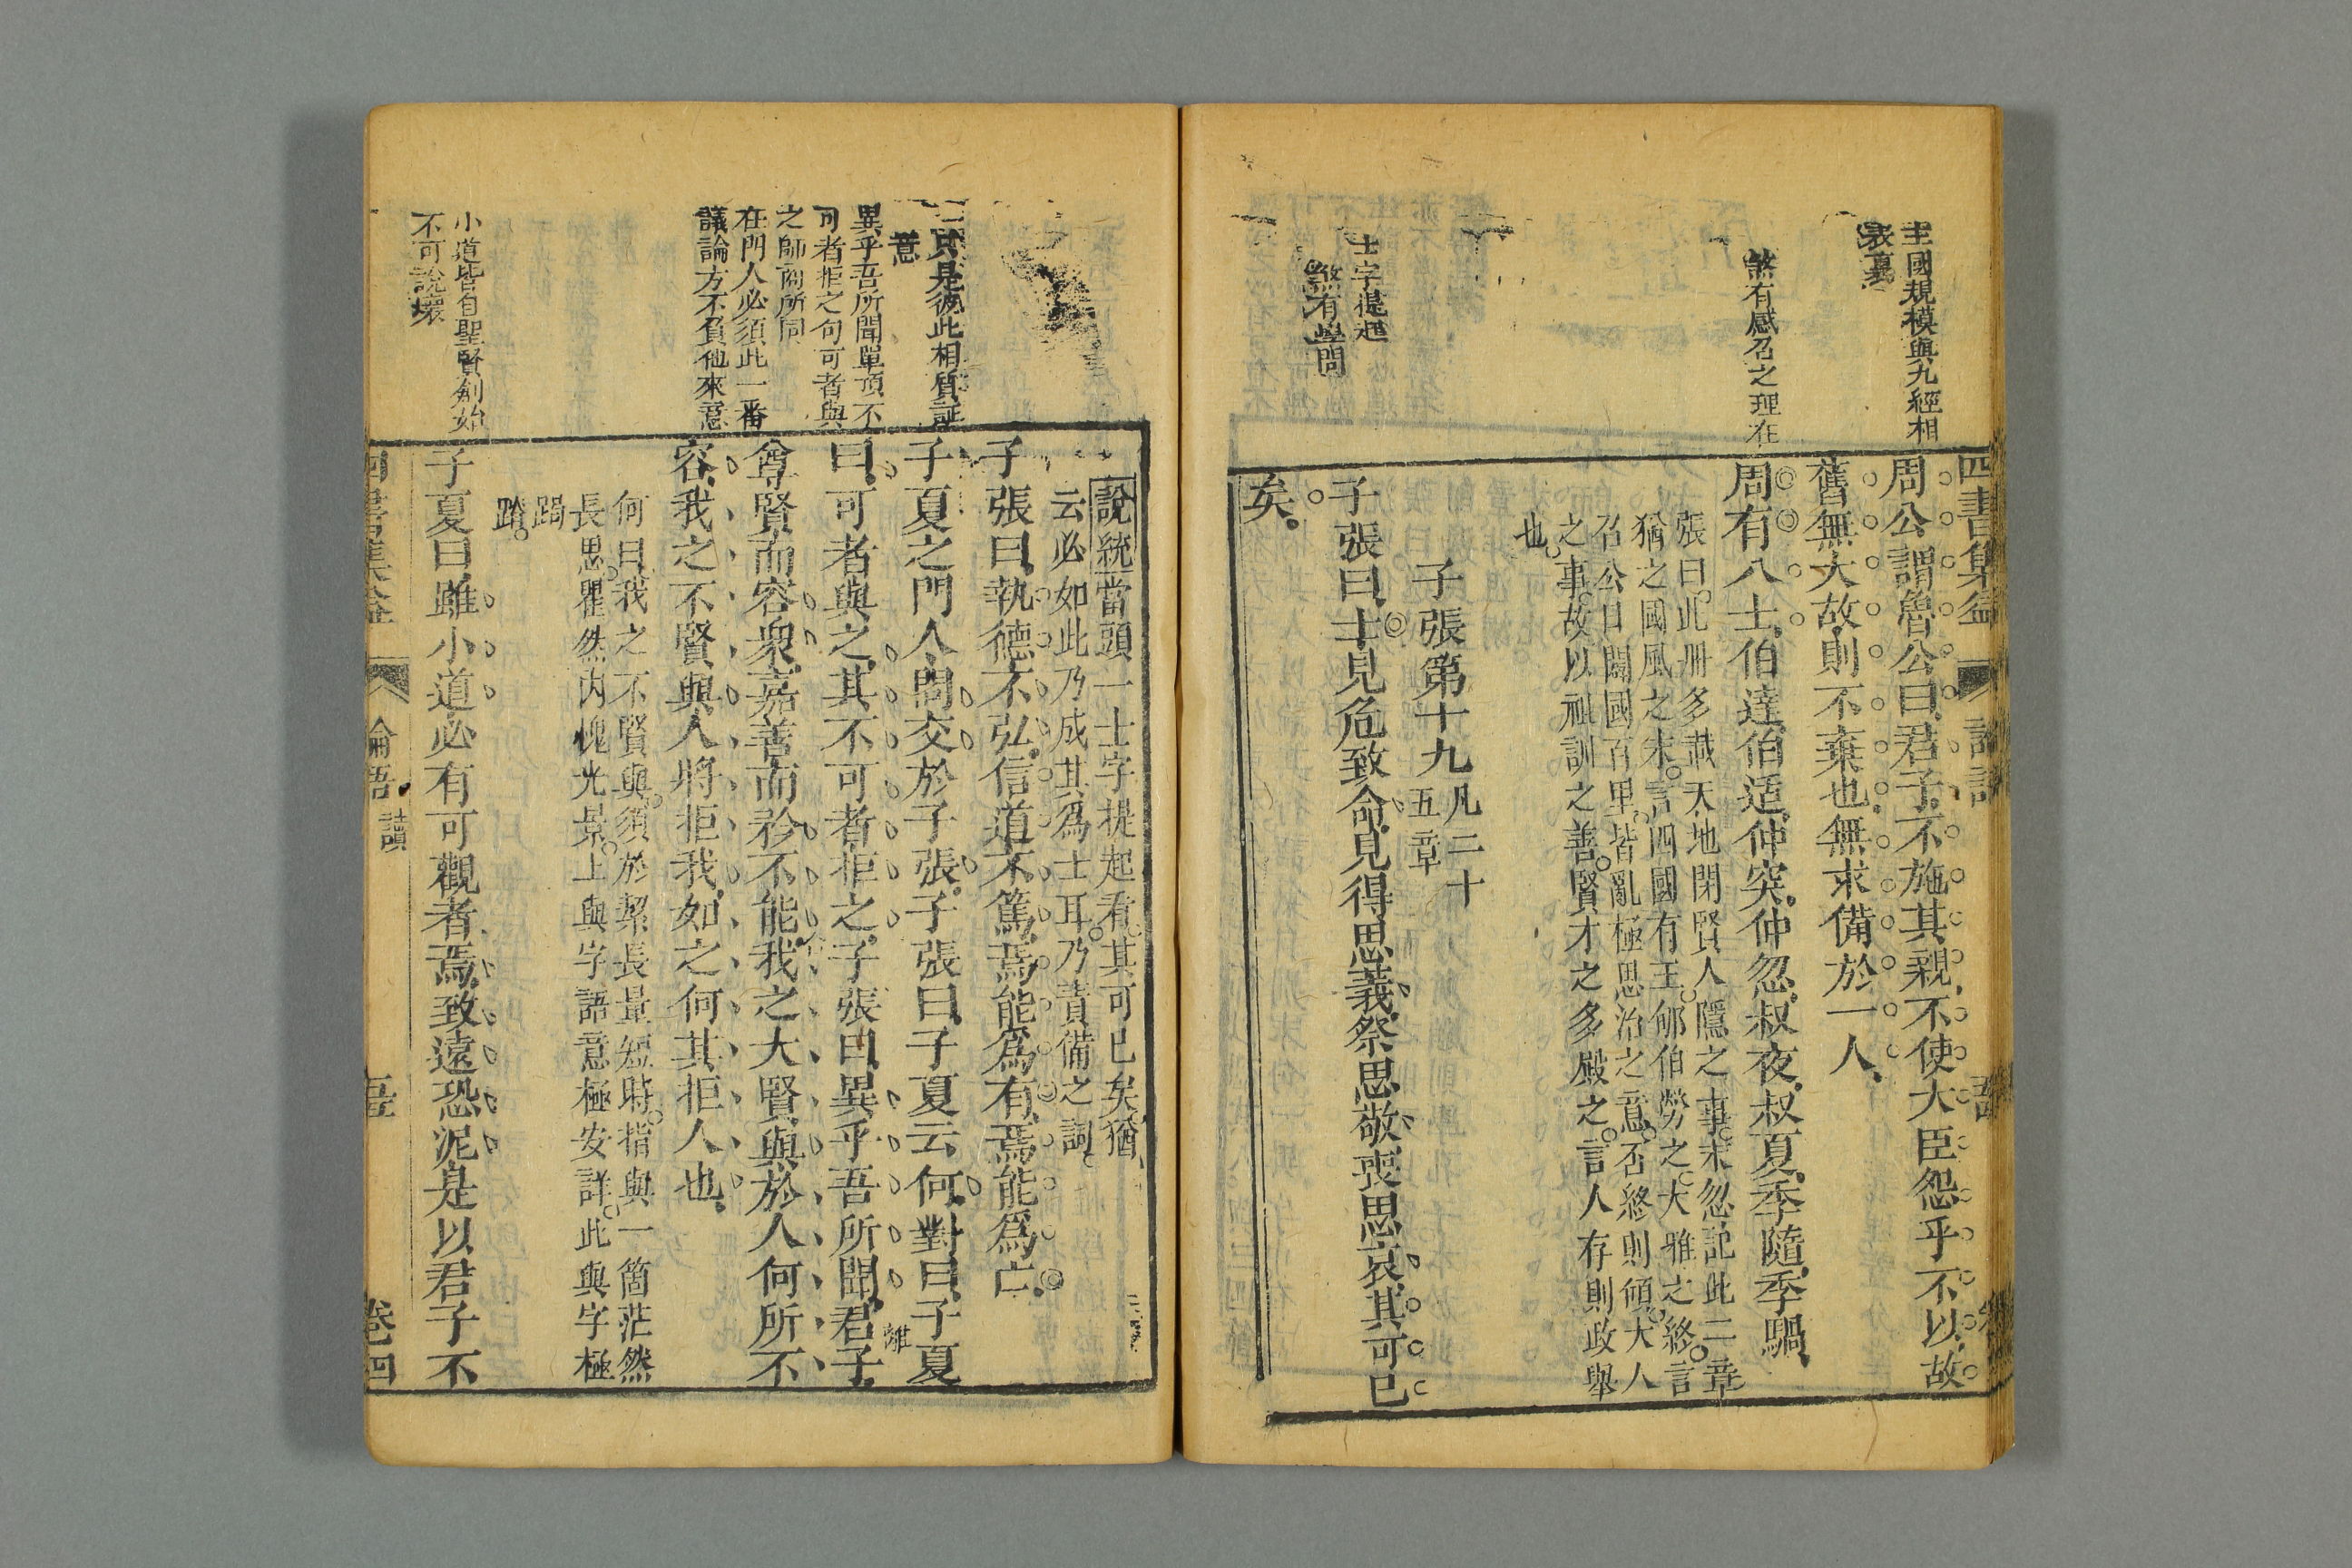 主國規模與九經相
表裏
煞有感召之理在
士字提起
煞有學問
四書集益
周公謂魯公曰君子不施其親不使大臣怨乎不以故
舊無大故則不棄也無求備於一人
周有八士伯達伯适仲突仲忽叔夜叔夏季隨季騧
張曰此冊多載天地閉賢人隱之事末忽記此二章
猶之國風之末言四國有王郇伯勞之大雅之終言
召公日闢國百里皆亂極思治之意否終則傾大人
之事故以祖訓之善賢才之多殿之言人存則政舉
也
子張第十九
凡二十
五章
子張曰士見危致命見得思義祭思敬喪思哀其可已
矣
只是彼此相質証
意
異乎吾所聞單頂不
可者拒之句可者與
之師商所同
在門人必須此一番
議論方不負他來意
小道皆自聖賢創始
不可說壞
說統當頭一士字提起看其可已矣猶
云必如此乃成其爲士耳乃責備之詞
子張曰執德不弘信道不篤焉能爲有焉能爲亡
子夏之門人問交於子張子張曰子夏云何對曰子夏
曰可者與之其不可者拒之子張曰異乎吾所聞君子
尊賢而容衆嘉善而矜不能我之大賢與於人何所不
容我之不賢與人將拒我如之何其拒人也
何曰我之不賢與須於絜長量短時指與一箇茫然
長思瞿然內愧光景上與字語意極安詳此與字極
跼
蹐
子夏曰雖小道必有可觀者焉致遠恐泥是以君子不
四書集益
論語
讀
卷四